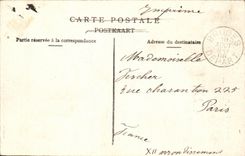 Imprimé
CARTE POSTALE
POSTKAART
Partie réservée à la correspondance
Adresse du destinataire
Mademoiselle
rue charanton 225
Paris
France
XII arrondissement